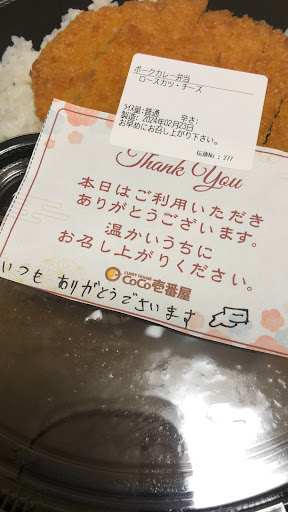 ポークカレー弁当
ロースカツ・チーズ
ライス量:普通 辛さ:
製造: 2024年02月23日
お早めにお召し上がり下さい。
伝票No : 277
Thank You
本日はご利用いただき
ありがとうございます。
温かいうちに
お召し上がりください。
CURRY HOUSE
CoCo壱番屋
いつも ありがとうございます